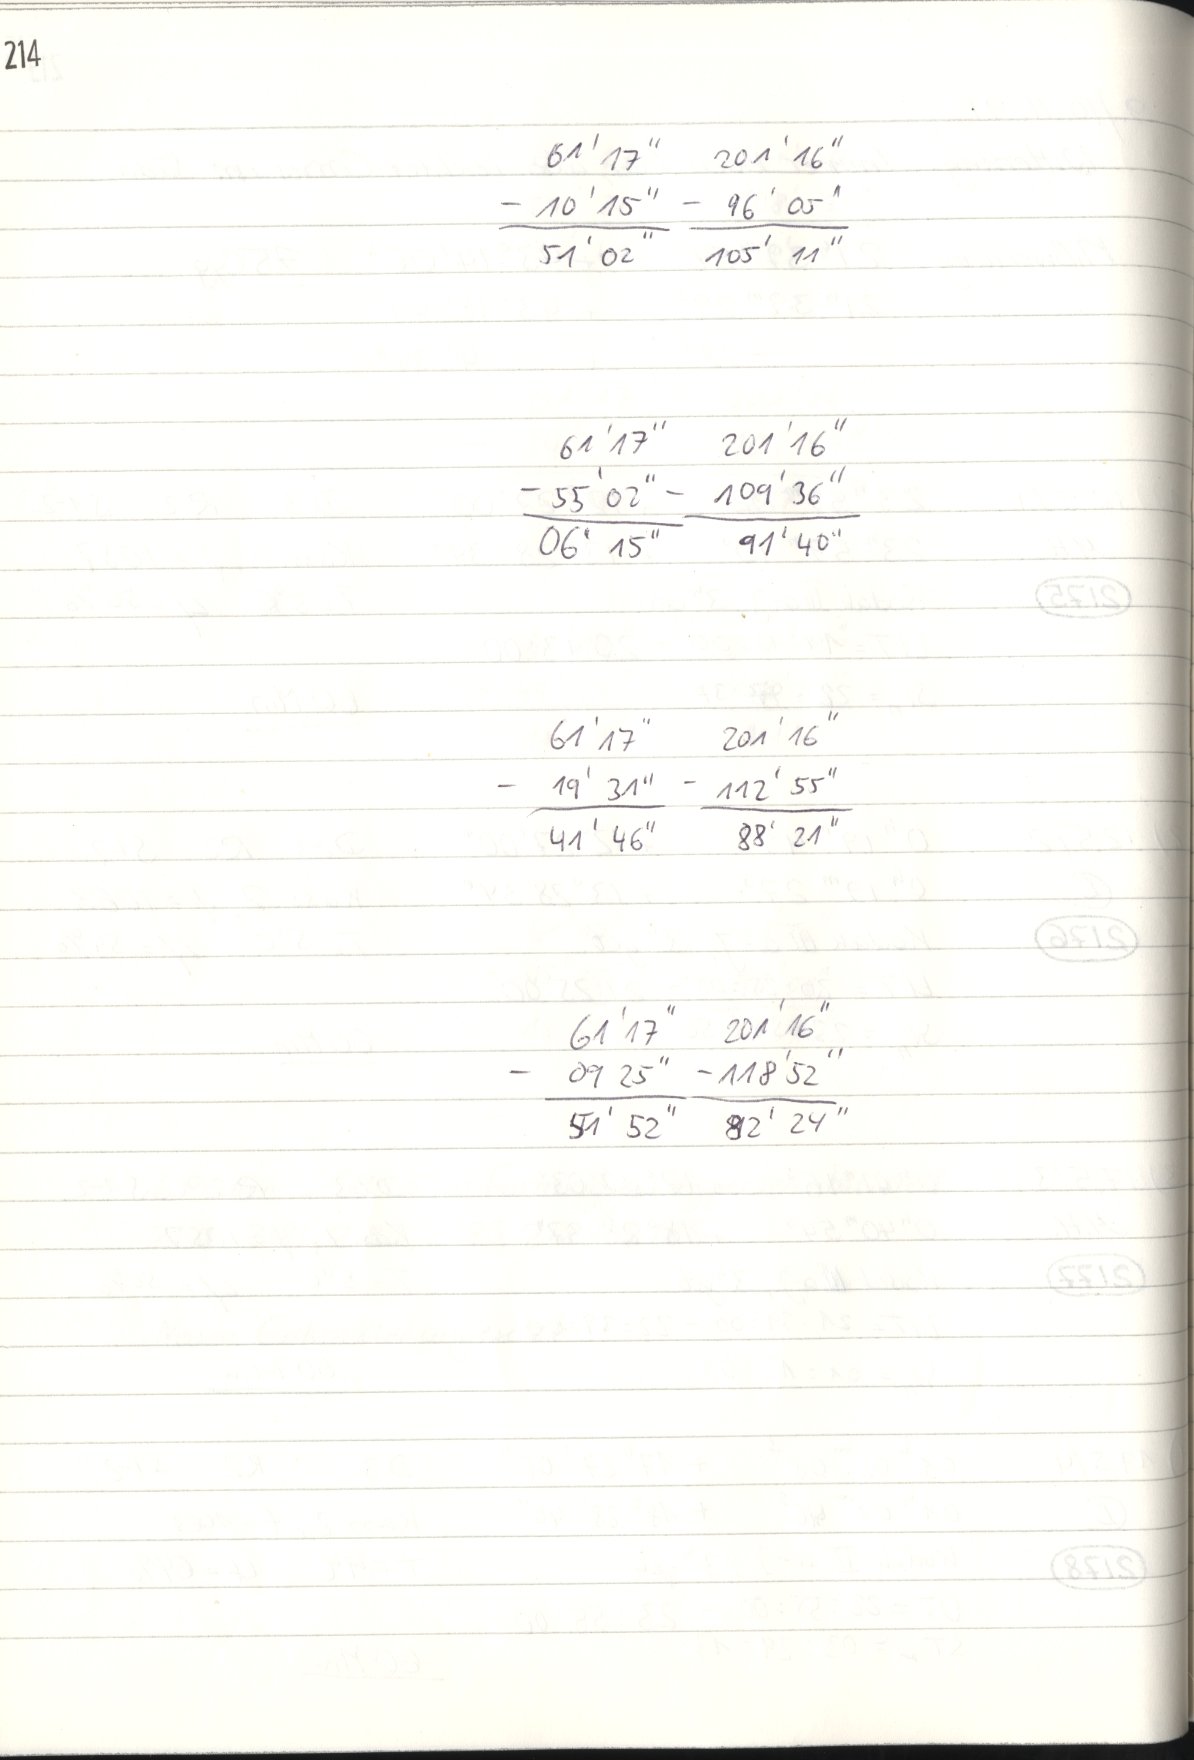 214
61' 17" 201' 16"
- 10' 15" - 96' 05"
51' 02" 105' 11"
61' 17" 201' 16"
- 55' 02" - 109' 36"
06' 15" 91' 40"
61' 17" 201' 16"
- 19' 31" - 112' 55"
41' 46" 88' 21"
61' 17" 201' 16"
- 09 25" - 118' 52"
51' 52" 82' 24"